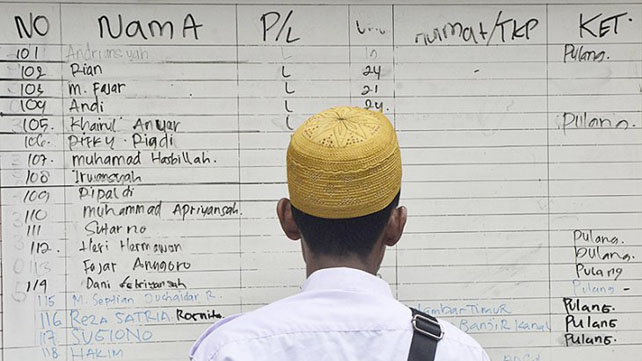 NO NAMA P/L UMUR ALAMAT/TKP KET.
101 Andriansyah L Pulang.
102 Rian L 24
103 M. Fajar L 21
104 Andi L 24
105. Khairul Anyar Pulang.
106. Rifky Rigdi
107. Muhamad Hasbillah.
108 Irwansyah
109 Ripaldi
110 Muhammad Apriyansah.
111 Sutarno Pulang.
112. Heri Hermawan Pulang.
113 Fajar Anggoro Pulang
114 Dani Febriyansah Pulang
115 M. Septian R. Timur Pulang.
116 REZA SATRIA Banjir Kanal Pulang.
117 SUGIONO Pulang.
118 HAKIM